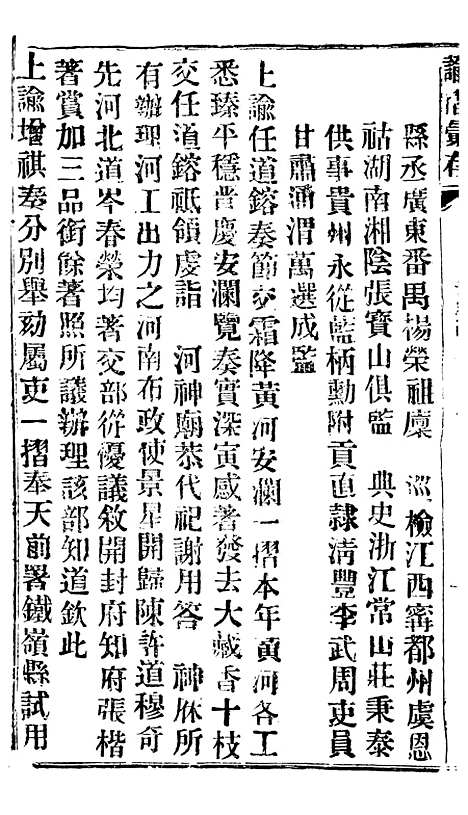 諭旨彙存
縣丞廣東番禺楊榮祖廩　巡檢江西寗都州虞恩
祜湖南湘陰張寶山俱監　典史浙江常山莊秉泰
供事貴州永從藍柄勳附貢直隸清豐李武周吏員
甘肅潘渭萬選成監
上諭任道鎔奏節交霜降黃河安瀾一摺本年黃河各工
悉臻平穩普慶安瀾覽奏實深寅感著發去大藏香十枝
交任道鎔祗領虔詣　河神廟恭代祀謝用答　神庥所
有辦理河工出力之河南布政使景星開歸陳許道穆奇
先河北道岑春榮均著交部從優議敘開封府知府張楷
著賞加三品銜餘著照所議辦理該部知道欽此
上諭增祺奏分別舉劾屬吏一摺奉天前署鐵嶺縣試用